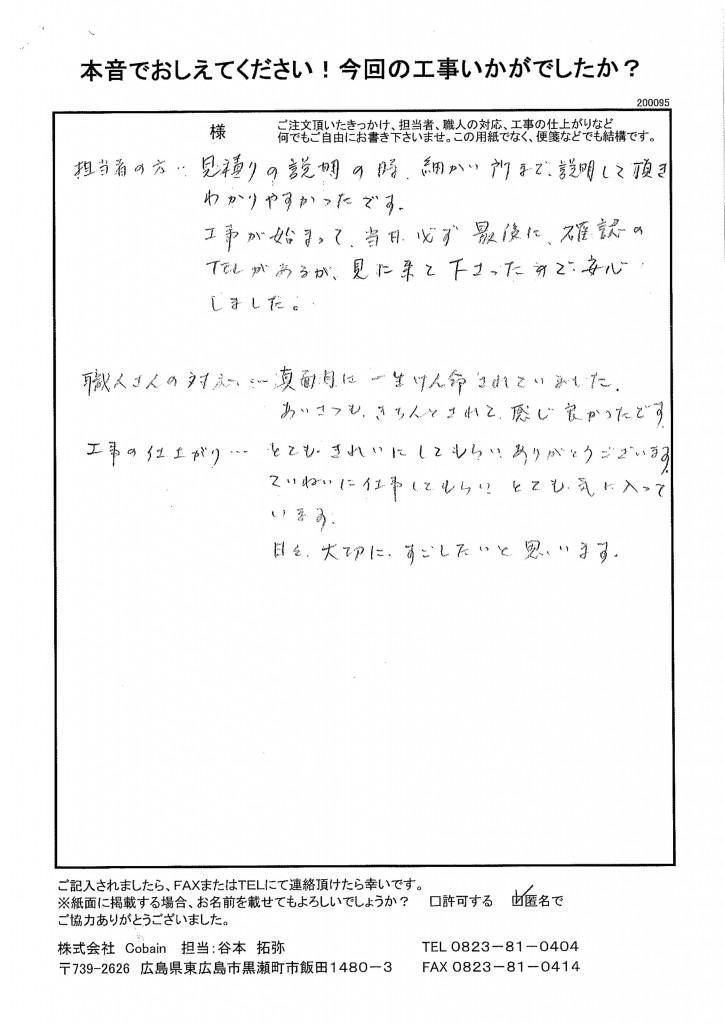 本音でおしえてください！今回の工事いかがでしたか？
200095
様
ご注文頂いたきっかけ、担当者、職人の対応、工事の仕上がりなど
何でもご自由にお書き下さいませ。この用紙でなく、便箋などでも結構です。
担当者の方‥見積りの説明の時、細かい所まで、説明して頂き
わかりやすかったです。
工事が始まって、当日必ず最後に、確認の
TELがあるが、見に来て下さったので安心
しました。
職人さんの対応…真面目に一生けん命されていました。
あいさつも、きちんとされて、感じ良かったです。
工事の仕上がり…とても、きれいにしてもらい、ありがとうございます。
ていねいに仕事してもらい とても、気に入って
います。
日々、大切に、すごしたいと思います。
ご記入されましたら、FAXまたはTELにて連絡頂けたら幸いです。
※紙面に掲載する場合、お名前を載せてもよろしいでしょうか？ □許可する ☑匿名で
ご協力ありがとうございました。
株式会社 Cobain 担当：谷本 拓弥 TEL 0823－81－0404
〒739-2626 広島県東広島市黒瀬町市飯田1480－3 FAX 0823－81－0414